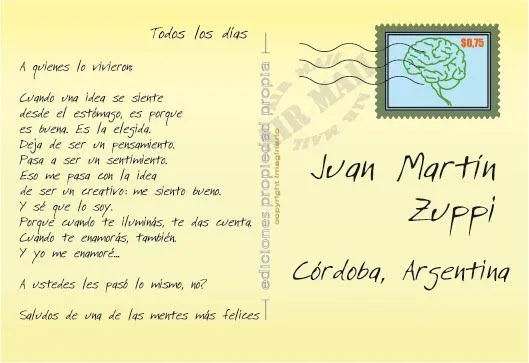 Todos los días
A quienes lo vivieron:
Cuando una idea se siente
desde el estómago, es porque
es buena. Es la elegida.
Deja de ser un pensamiento.
Pasa a ser un sentimiento.
Eso me pasa con la idea
de ser un creativo: me siento bueno.
Y sé que lo soy.
Porque cuando te iluminás, te das cuenta.
Cuando te enamorás, también.
Y yo me enamoré...
A ustedes les pasó lo mismo, no?
Saludos de una de las mentes más felices
ediciones propiedad propia
copyright imaginario
AIR MAIL
$0,75
Juan Martín
Zuppi
Córdoba, Argentina